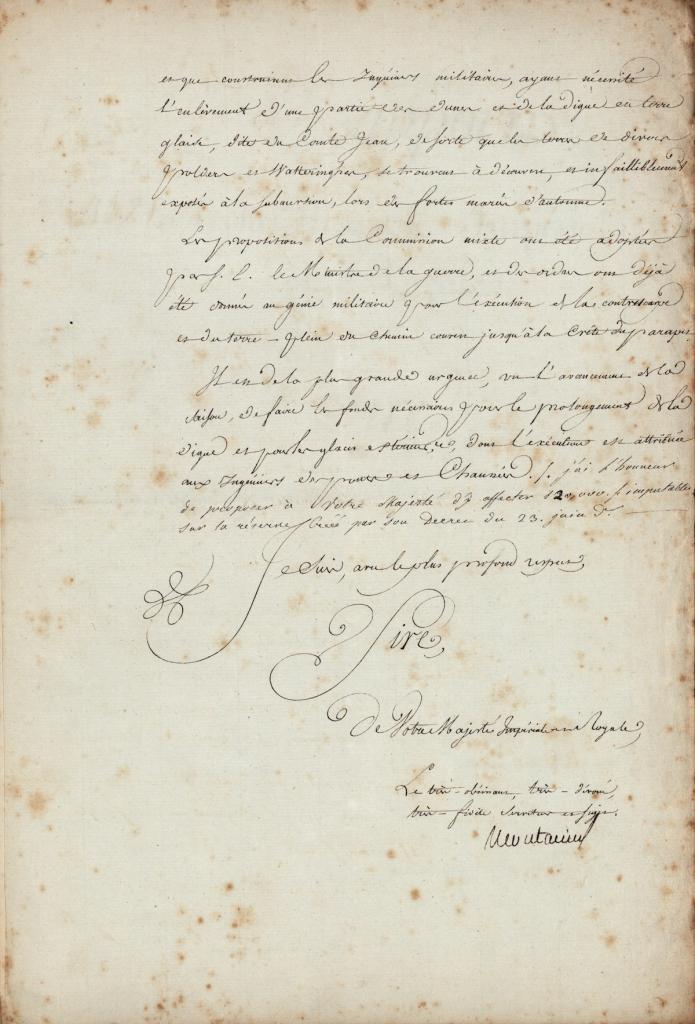 et que construisent les Ingénieurs militaires, ayant nécessité
l'enlèvement d'une partie des dunes et de la digue en terre
glaise, dite du Comte Jean, de sorte que les terres de divers
polders et Watteringues, se trouvent à découvert, et infailliblement
exposés à la submersion, lors des fortes marées d'automne.
Les propositions de la Commission mixte ont été adoptées
par S. E. le Ministre de la guerre, et des ordres ont déjà
été donnés au génie militaire pour l'exécution de la contrescarpe
et du terre-plein du chemin couvert jusqu'à la Crête du parapet.
Il est de la plus grande urgence, vu l'avancement de la
saison, de faire les fonds nécessaires pour le prolongement de la
digue et pour les glacis extérieurs, dont l'exécution est attribuée
aux Ingénieurs des ponts et Chaussées. /. j'ai l'honneur
de proposer à Votre Majesté d'y affecter 120,000 f. imputables
sur la réserve Créée par son Decret du 23. juin dr.
Je Suis, avec le plus profond respect,
Sire,
De Votre Majesté Impériale et Royale,
Le très-obéissant, très-dévoué,
très-fidèle Serviteur et Sujet.
Montalivet